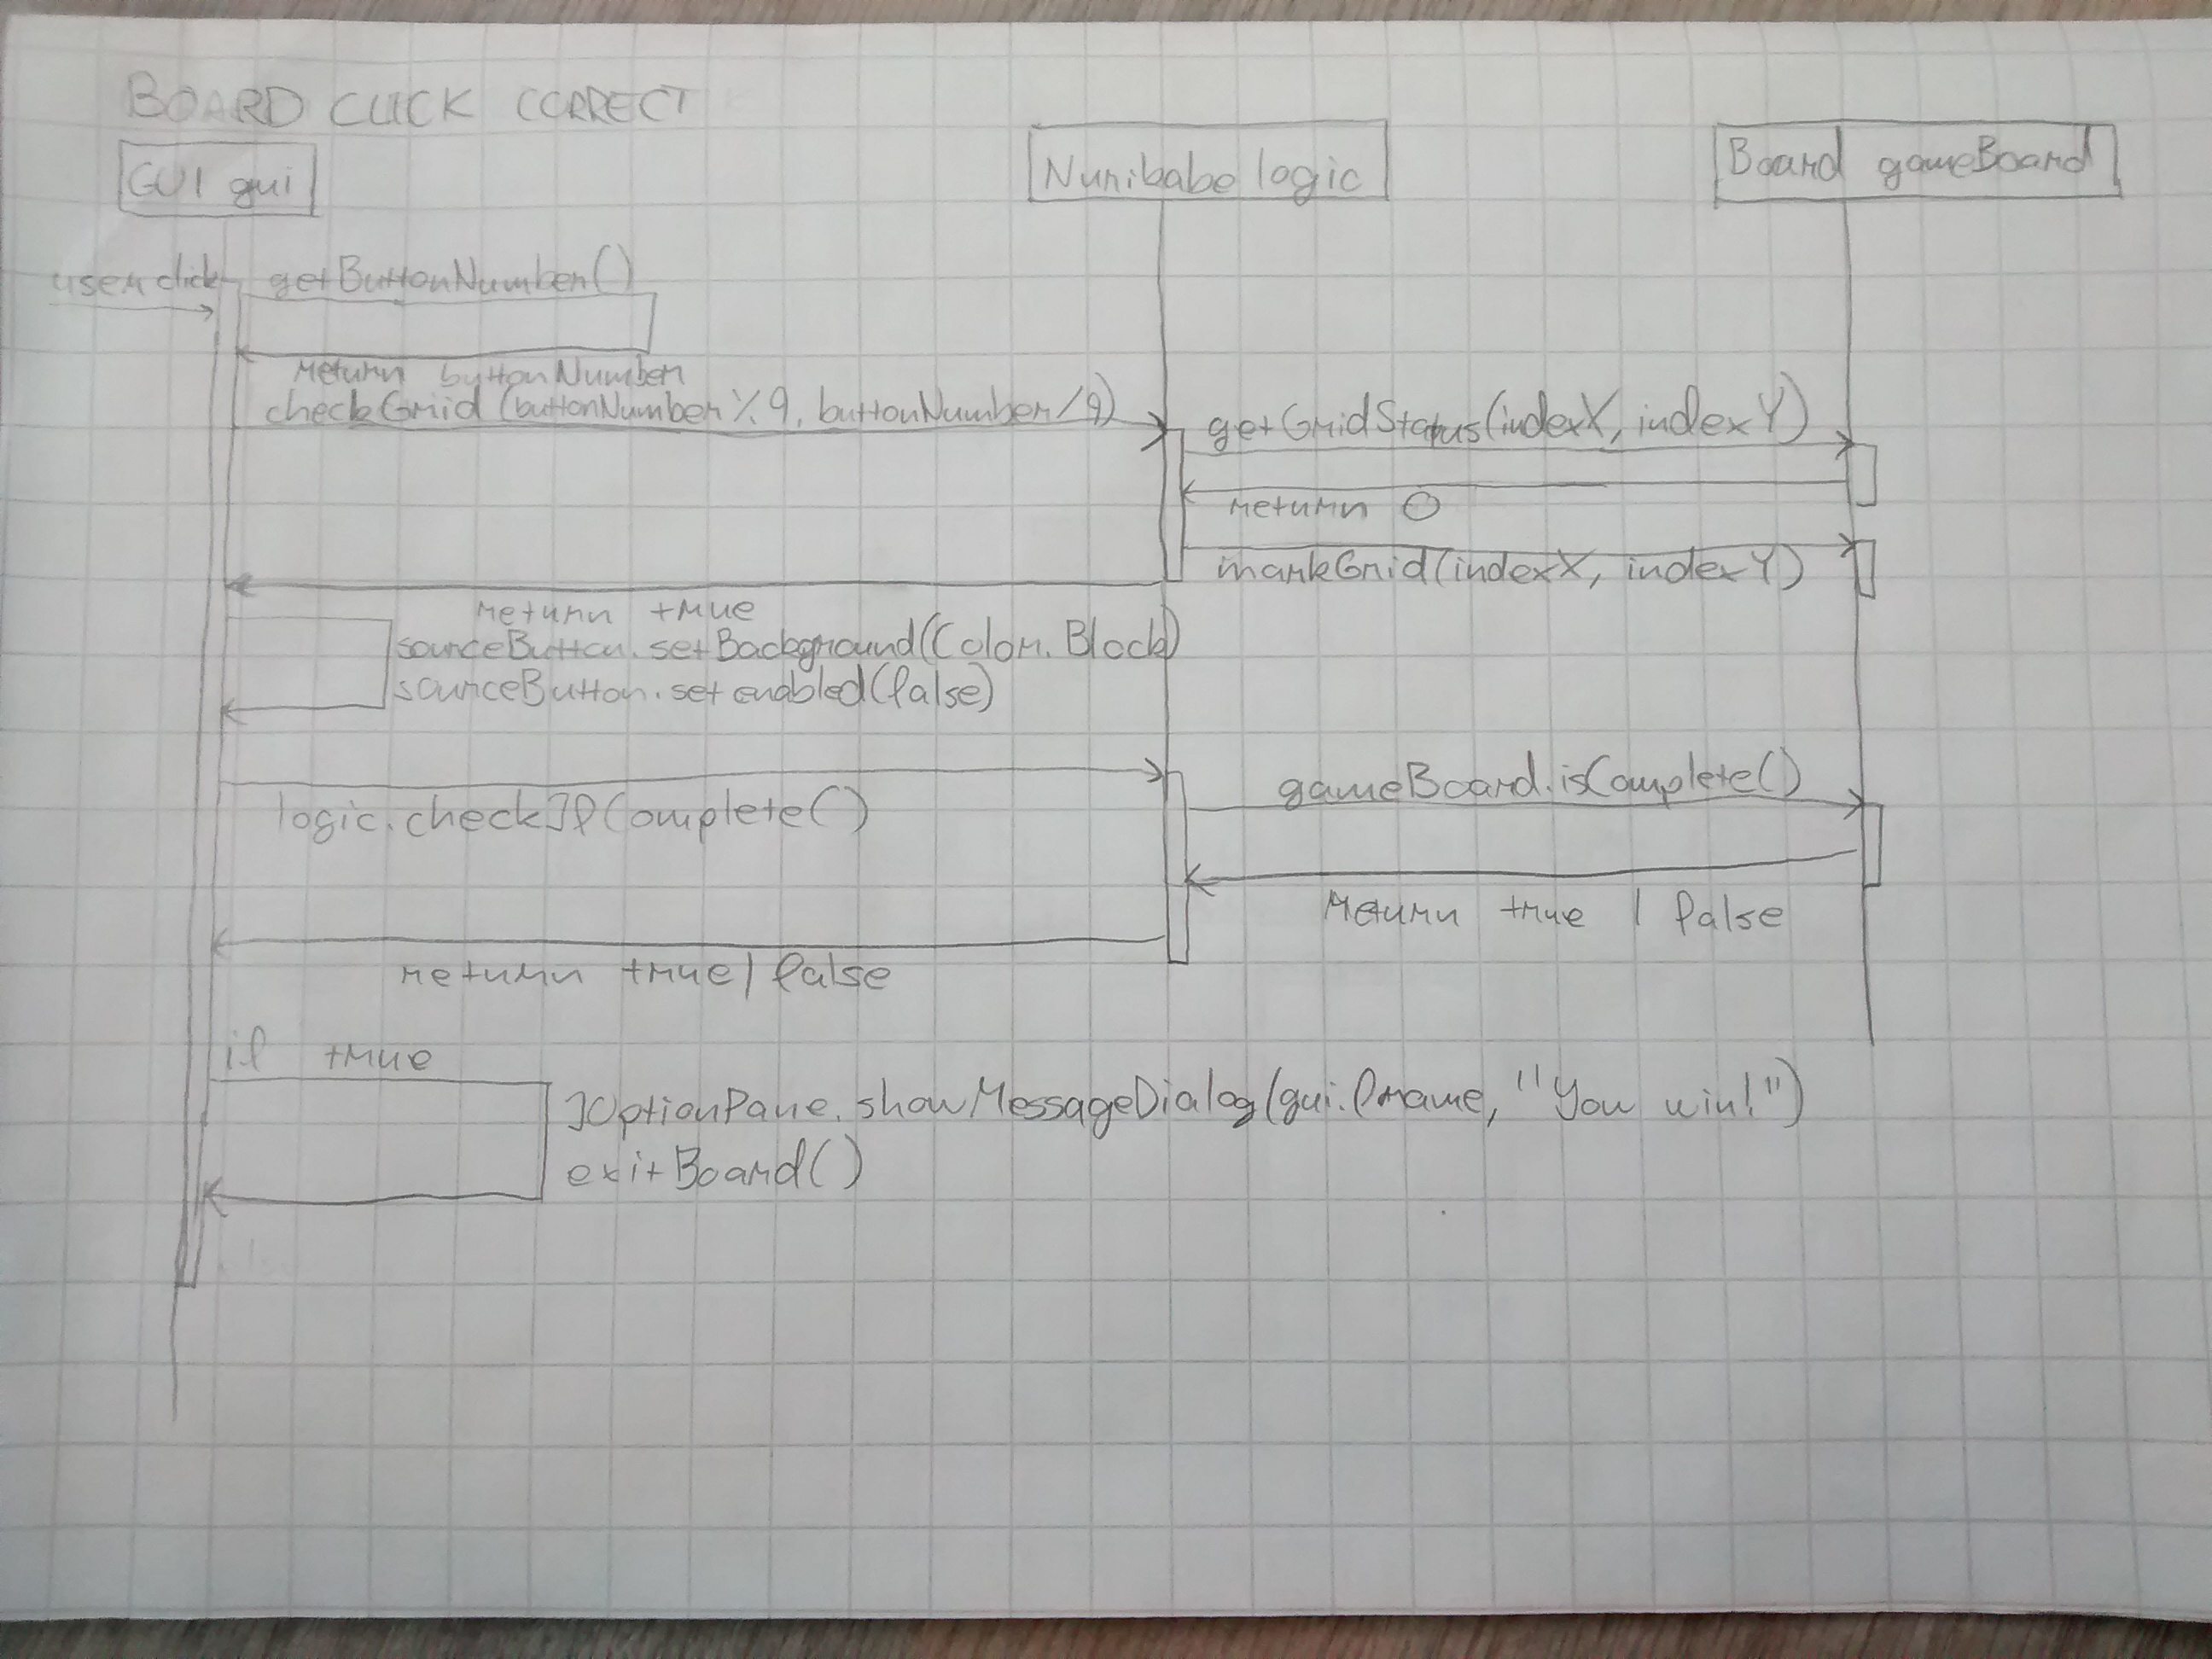 BOARD CLICK CORRECT
GUI gui
Nuribabe logic
Board gameBoard
user click
getButtonNumber()
return buttonNumber
checkGrid (buttonNumber%9, buttonNumber/9)
getGridStatus(indexX, indexY)
return 0
markGrid(indexX, indexY)
return true
sourceButton.setBackground(Color.Black)
sourceButton.setenabled(false)
logic.checkIfComplete()
gameBoard.isComplete()
return true | false
return true | false
if true
JOptionPane.showMessageDialog(gui.frame, "You win!")
exitBoard()